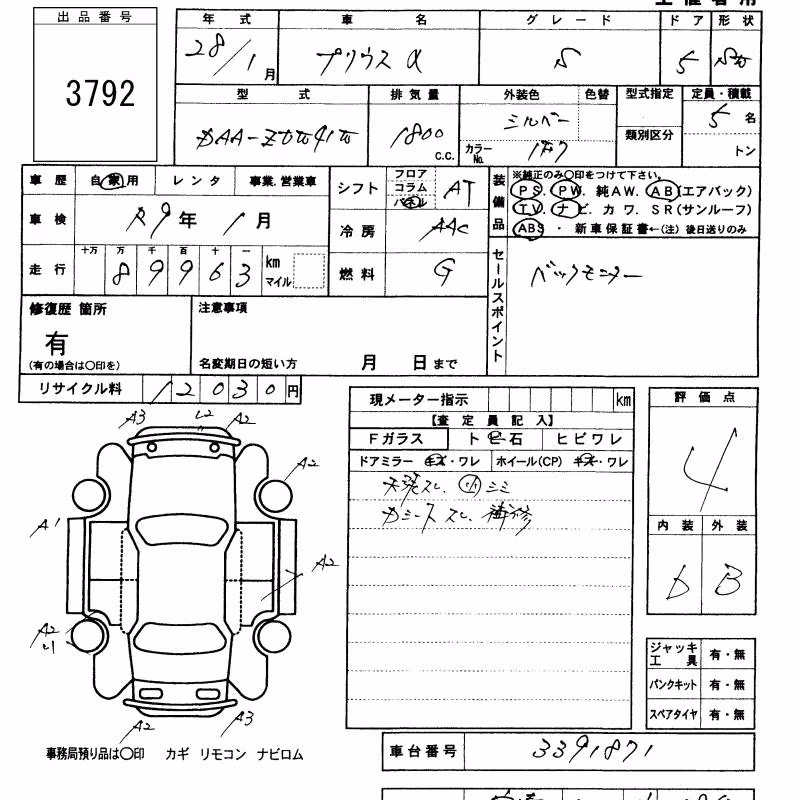 出品番号
3792
年式
28/1月
車名
プリウスα
グレード
S
ドア 形状
5
型式
DAA-ZVW41W
排気量
1800 C.C.
外装色 色替
シルバー
カラーNo.
1F7
型式指定
類別区分
定員・積載
5名
トン
車歴 自家用 レンタ 事業.営業車
車検 R9年 1月
走行 十万 万 千 百 十 一
89963 km マイル
シフト フロア コラム パネル AT
冷房 AAC
燃料 G
装備品
※純正のみ〇印をつけて下さい。
PS. PW. 純AW. AB(エアバック)
TV. ナビ. カワ. SR(サンルーフ)
ABS ・ 新車保証書←(注) 後日送りのみ
セールスポイント
バックモニター
修復歴 箇所
有
(有の場合は〇印を)
注意事項
名変期日の短い方 月 日まで
リサイクル料 12030円
現メーター指示 km
【査定員記入】
Fガラス ト ビ 石 ヒビワレ
ドアミラー キズ・ワレ ホイール(CP) キズ・ワレ
内装スレ. 小シミ
カミース スレ. 補修
評価点
4
内装 外装
b B
A3 L2 A2
A2
A1
A2
A2
A2 A3
ジャッキ 工具 有・無
パンクキット 有・無
スペアタイヤ 有・無
事務局預り品は〇印 カギ リモコン ナビロム
車台番号 3391871